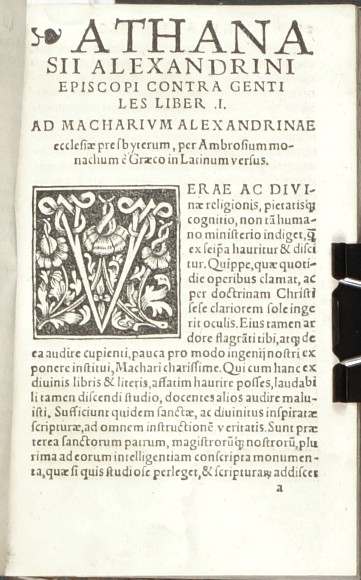 ATHANA
SII ALEXANDRINI
EPISCOPI CONTRA GENTI
LES LIBER .I.
AD MACHARIVM ALEXANDRINAE
ecclesiæ presbyterum, per Ambrosium mo-
nachum è Græco in Latinum versus.
VERAE AC DIVI-
næ religionis, pietatisq́;
cognitio, non tā huma-
no ministerio indiget, q̄
ex seipsa hauritur & disci
tur. Quippe, quæ quoti-
die operibus clamat, ac
per doctrinam Christi
sese clariorem sole inge
rit oculis. Eius tamen ar
dore flagrāti tibi, atq; de
ea audire cupienti, pauca pro modo ingenij nostri ex
ponere institui, Machari charissime. Qui cum hanc ex
diuinis libris & literis, affatim haurire posses, laudabi
li tamen discendi studio, docentes alios audire malu-
isti. Sufficiunt quidem sanctæ, ac diuinitus inspiratæ
scripturæ, ad omnem instructionē veritatis. Sunt præ
terea sanctorum patrum, magistrorūq́; nostrorū, plu
rima ad eorum intelligentiam conscripta monumen-
ta, quæ si quis studiose perleget, & scripturas addiscet
a